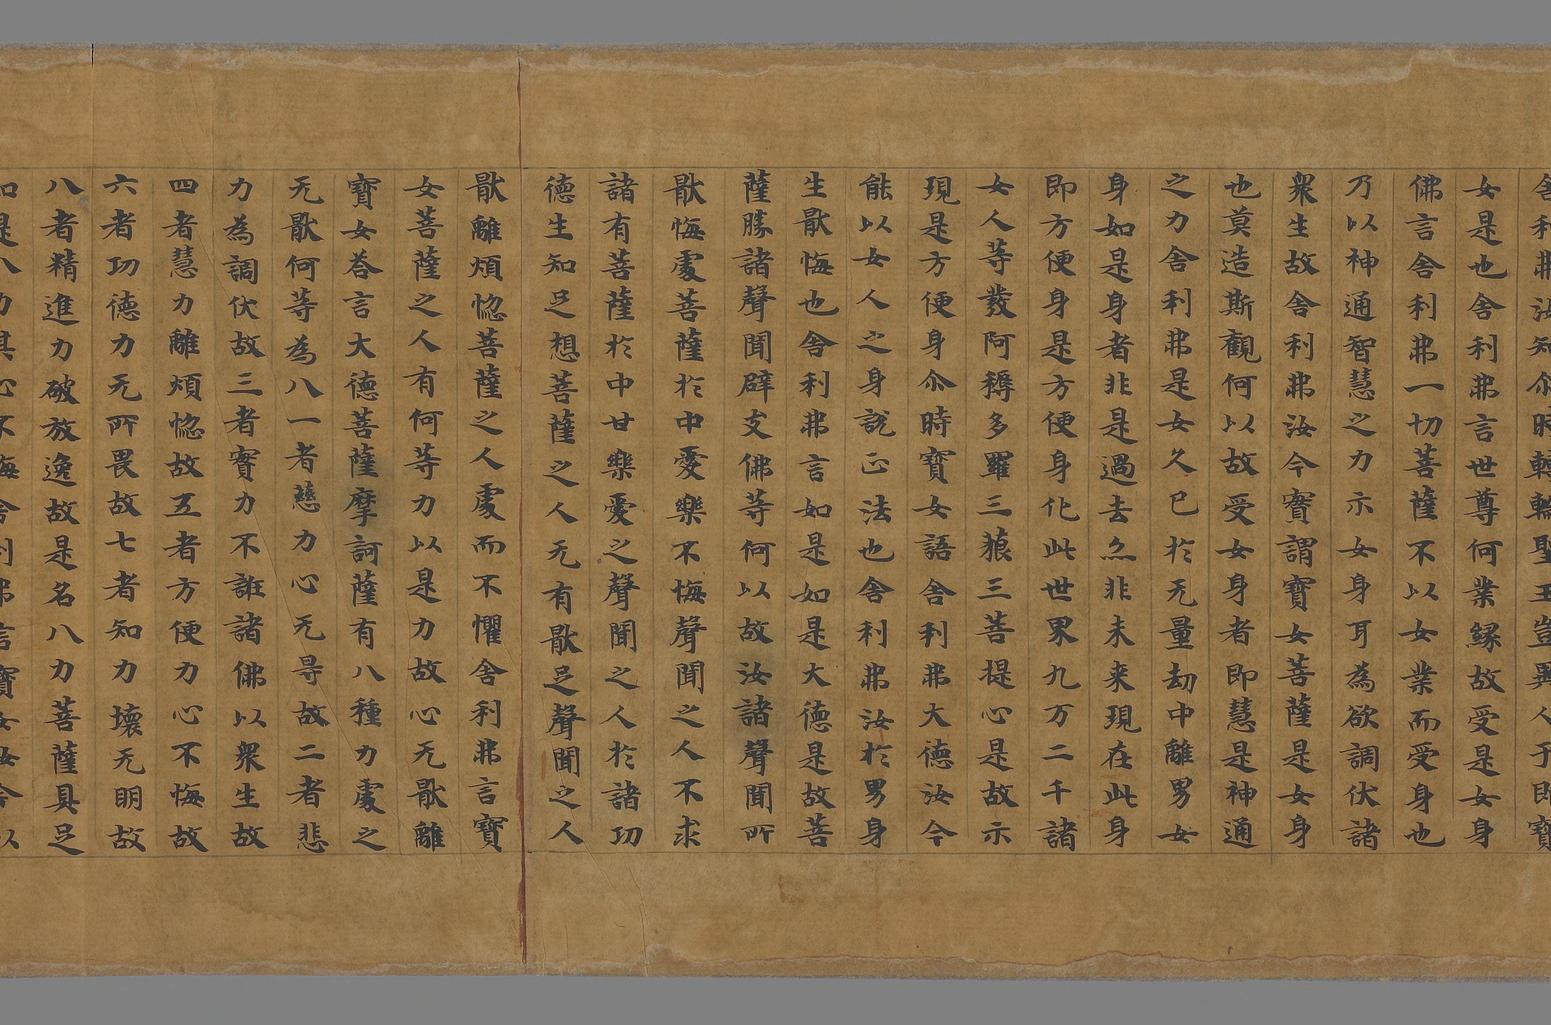 舍利弗汝知尒時轉輪聖王豈異人乎即寶
女是也舍利弗言世尊何業緣故受是女身
佛言舍利弗一切菩薩不以女業而受身也
乃以神通智慧之力示女身耳為欲調伏諸
衆生故舍利弗汝今實謂寶女菩薩是女身
也莫造斯觀何以故受女身者即慧是神通
之力舍利弗是女久已於无量劫中離男女
身如是身者非是過去亦非未来現在此身
即方便身是方便身化此世界九万二千諸
女人等發阿耨多羅三藐三菩提心是故示
現是方便身尒時寶女語舍利弗大德汝今
能以女人之身說正法也舍利弗汝於男身
生猒悔也舍利弗言如是如是大德是故菩
薩勝諸聲聞辟支佛等何以故汝諸聲聞所
猒悔處菩薩於中愛樂不悔聲聞之人不求
諸有菩薩於中甘樂愛之聲聞之人於諸功
德生知足想菩薩之人无有猒足聲聞之人
猒離煩惚菩薩之人處而不懼舍利弗言寶
女菩薩之人有何等力以是力故心无猒離
寶女荅言大德菩薩摩訶薩有八種力處之
无猒何等為八一者慈力心无㝵故二者悲
力為調伏故三者實力不誑諸佛以衆生故
四者慧力離煩惚故五者方便力心不悔故
六者功德力无所畏故七者知力壞无明故
八者精進力破放逸故是名八力菩薩具足
如是八力其心不悔舍利弗言寶女汝今以